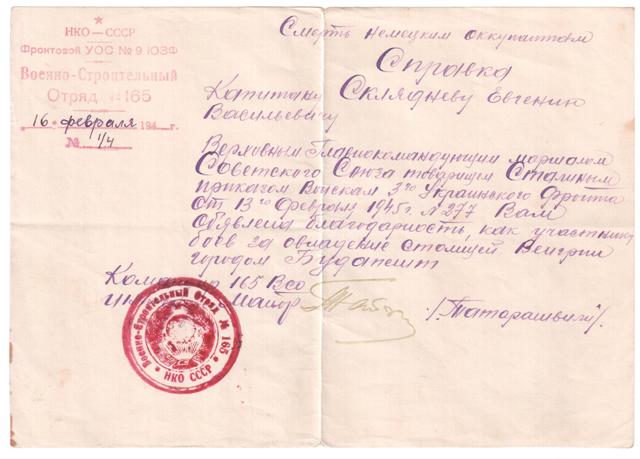 НКО–СССР
Фронтовой УОС № 9 ЮЗФ
Военно-Строительный
Отряд № 165
16 февраля 194 г.
№ 1/4
Смерть немецким оккупантам
Справка
Капитану Скляднёву Евгению
Васильевичу
Верховным Главнокомандующим маршалом
Советского Союза товарищем Сталиным
приказом Войскам 3го Украинского Фронта
от 13го февраля 1945 г. № 277 Вам
объявлена благодарность, как участнику
боев за овладение столицей Венгрии
городом Будапешт
165 Всо
майор /Татарашвили/.
Военно-Строительный Отряд № 165
НКО СССР